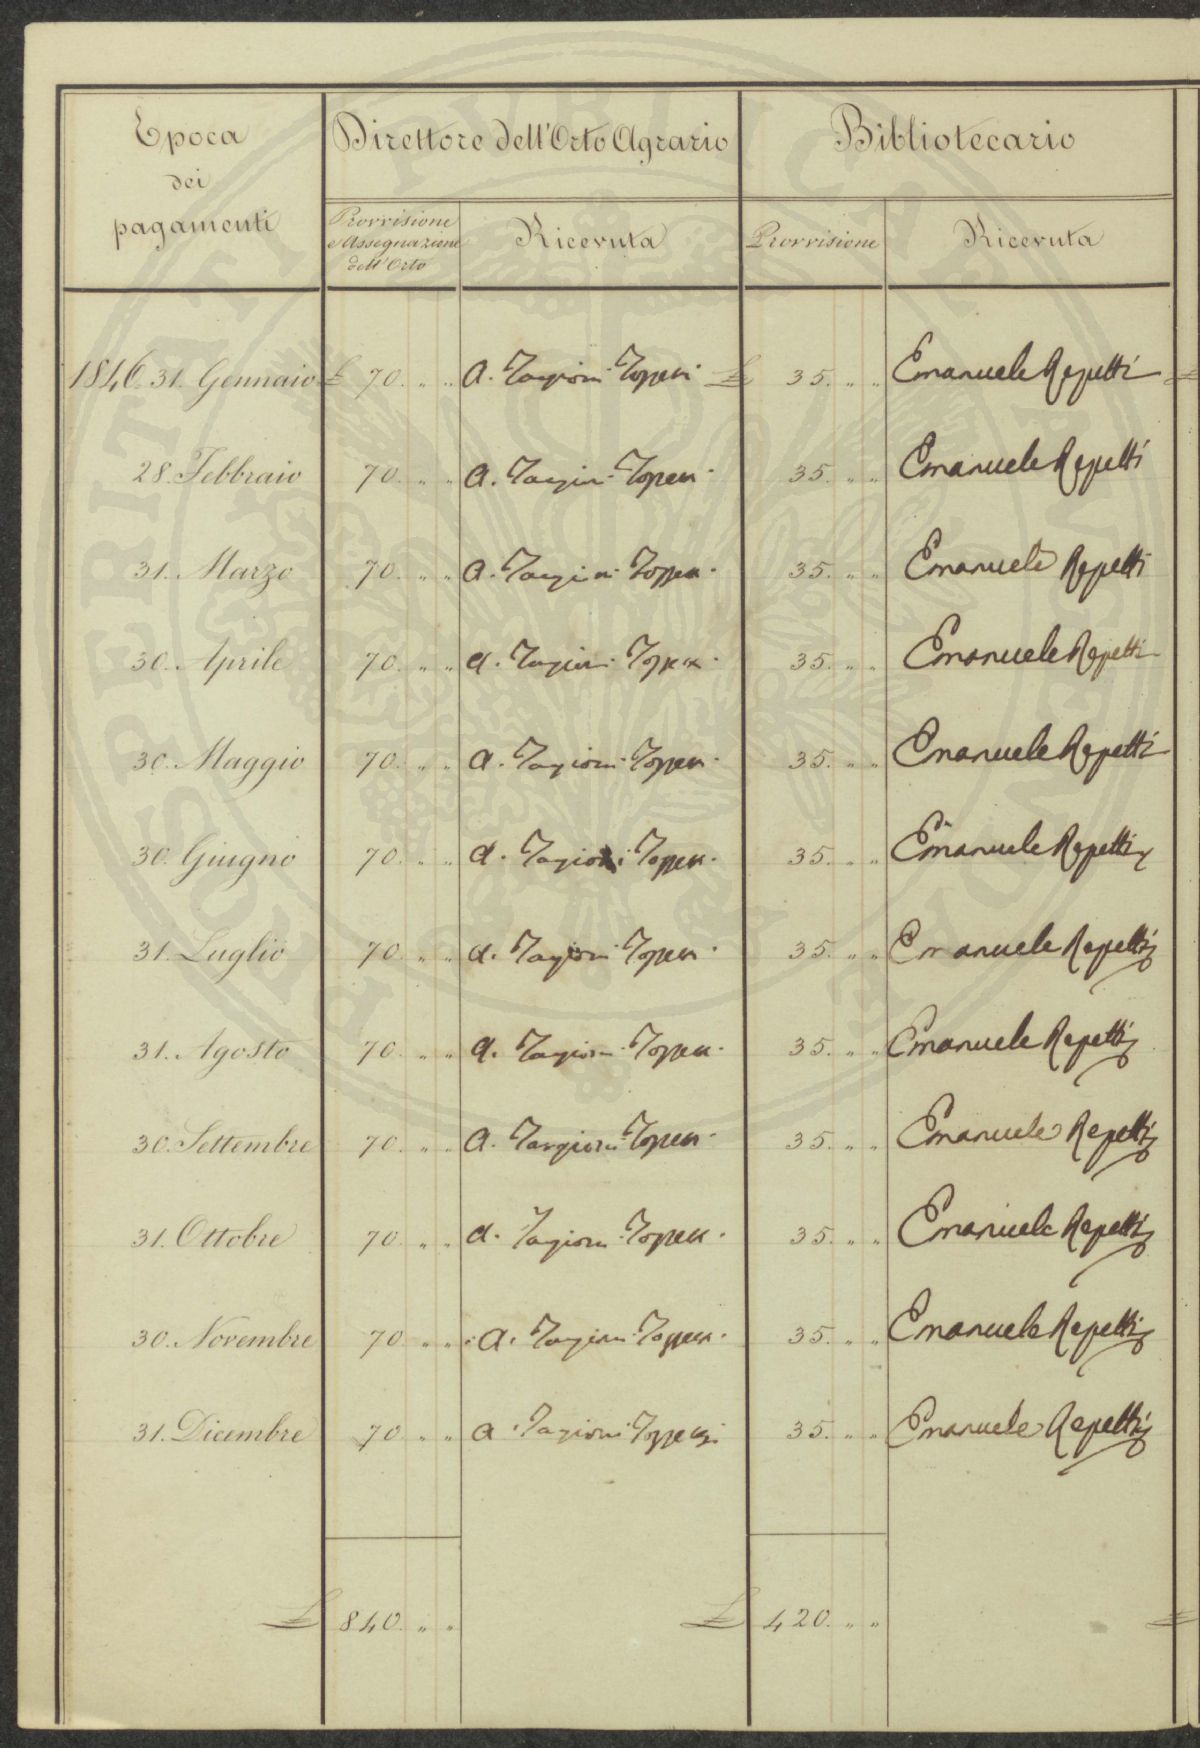 Epoca
dei
pagamenti
Direttore dell'Orto Agrario
Bibliotecario
Provvisione
e Assegnazione
dell'Orto
Ricevuta
Provvisione
Ricevuta
1846. 31. Gennaio £ 70. „ „ A. Targioni Tozzetti £ 35. „ „ Emanuele Repetti
28. Febbraio 70. „ „ A. Targioni Tozzetti 35. „ „ Emanuele Repetti
31. Marzo 70. „ „ A. Targioni Tozzetti 35. „ „ Emanuele Repetti
30. Aprile 70. „ „ A. Targioni Tozzetti 35. „ „ Emanuele Repetti
30. Maggio 70. „ „ A. Targioni Tozzetti 35. „ „ Emanuele Repetti
30. Giugno 70. „ „ A. Targioni Tozzetti 35. „ „ Emanuele Repetti
31. Luglio 70. „ „ A. Targioni Tozzetti 35. „ „ Emanuele Repetti
31. Agosto 70. „ „ A. Targioni Tozzetti 35. „ „ Emanuele Repetti
30. Settembre 70. „ „ A. Targioni Tozzetti 35. „ „ Emanuele Repetti
31. Ottobre 70. „ „ A. Targioni Tozzetti 35. „ „ Emanuele Repetti
30. Novembre 70. „ „ A. Targioni Tozzetti 35. „ „ Emanuele Repetti
31. Dicembre 70. „ „ A. Targioni Tozzetti 35. „ „ Emanuele Repetti
£ 840. „ „ £ 420. „ „
PROSPERITATI PUBLICAE AUGENDAE